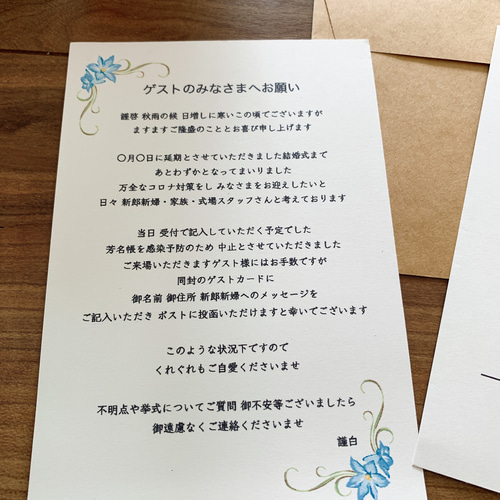 ゲストのみなさまへお願い
謹啓 秋雨の候 日増しに寒いこの頃でございますが
ますますご隆盛のこととお喜び申し上げます
〇月〇日に延期とさせていただきました結婚式まで
あとわずかとなってまいりました
万全なコロナ対策をし みなさまをお迎えしたいと
日々 新郎新婦・家族・式場スタッフさんと考えております
当日 受付で記入していただく予定でした
芳名帳を感染予防のため 中止とさせていただきました
ご来場いただきますゲスト様にはお手数ですが
同封のゲストカードに
御名前 御住所 新郎新婦へのメッセージを
ご記入いただき ポストに投函いただけますと幸いでございます
このような状況下ですので
くれぐれもご自愛くださいませ
不明点や挙式についてご質問 御不安等ございましたら
御遠慮なくご連絡くださいませ
謹白